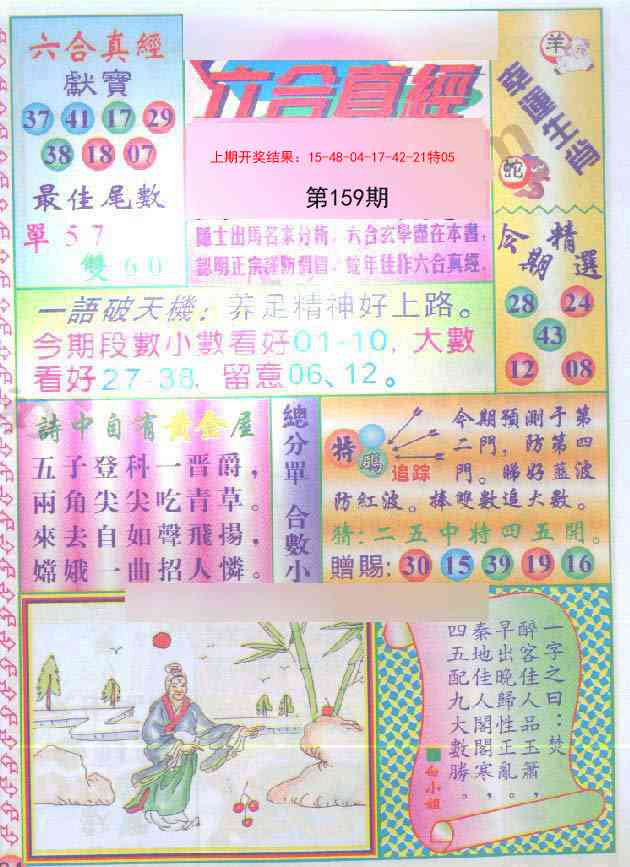 六合真經
獻寶
37 41 17 29
38 18 07
最佳尾數
單 5 7
雙 6 0
六合真經
上期开奖结果：15-48-04-17-42-21特05
第159期
隱士出馬名家分析，六合玄學盡在本書，
認明正宗謹防假冒，蛇年佳作六合真經。
羊
幸運生肖
蛇
今期精選
28 24
43
12 08
一語破天機：养足精神好上路。
今期段數小數看好01-10，大數
看好27-38，留意06、12。
詩中自有黃金屋
五子登科一晋爵，
兩角尖尖吃青草。
來去自如聲飛揚，
嫦娥一曲招人憐。
總分單 合數小
特
碼
追踪
今期預測于第
二門，防第四
門。睇好藍波
防紅波。捧雙數追大數。
猜：二五中特四五開。
贈賜：30 15 39 19 16
一字之曰：焚
醉客佳人品玉簫，
早出晚歸性正亂，
秦地佳人閣閣寒。
四五配九大數勝
白小姐